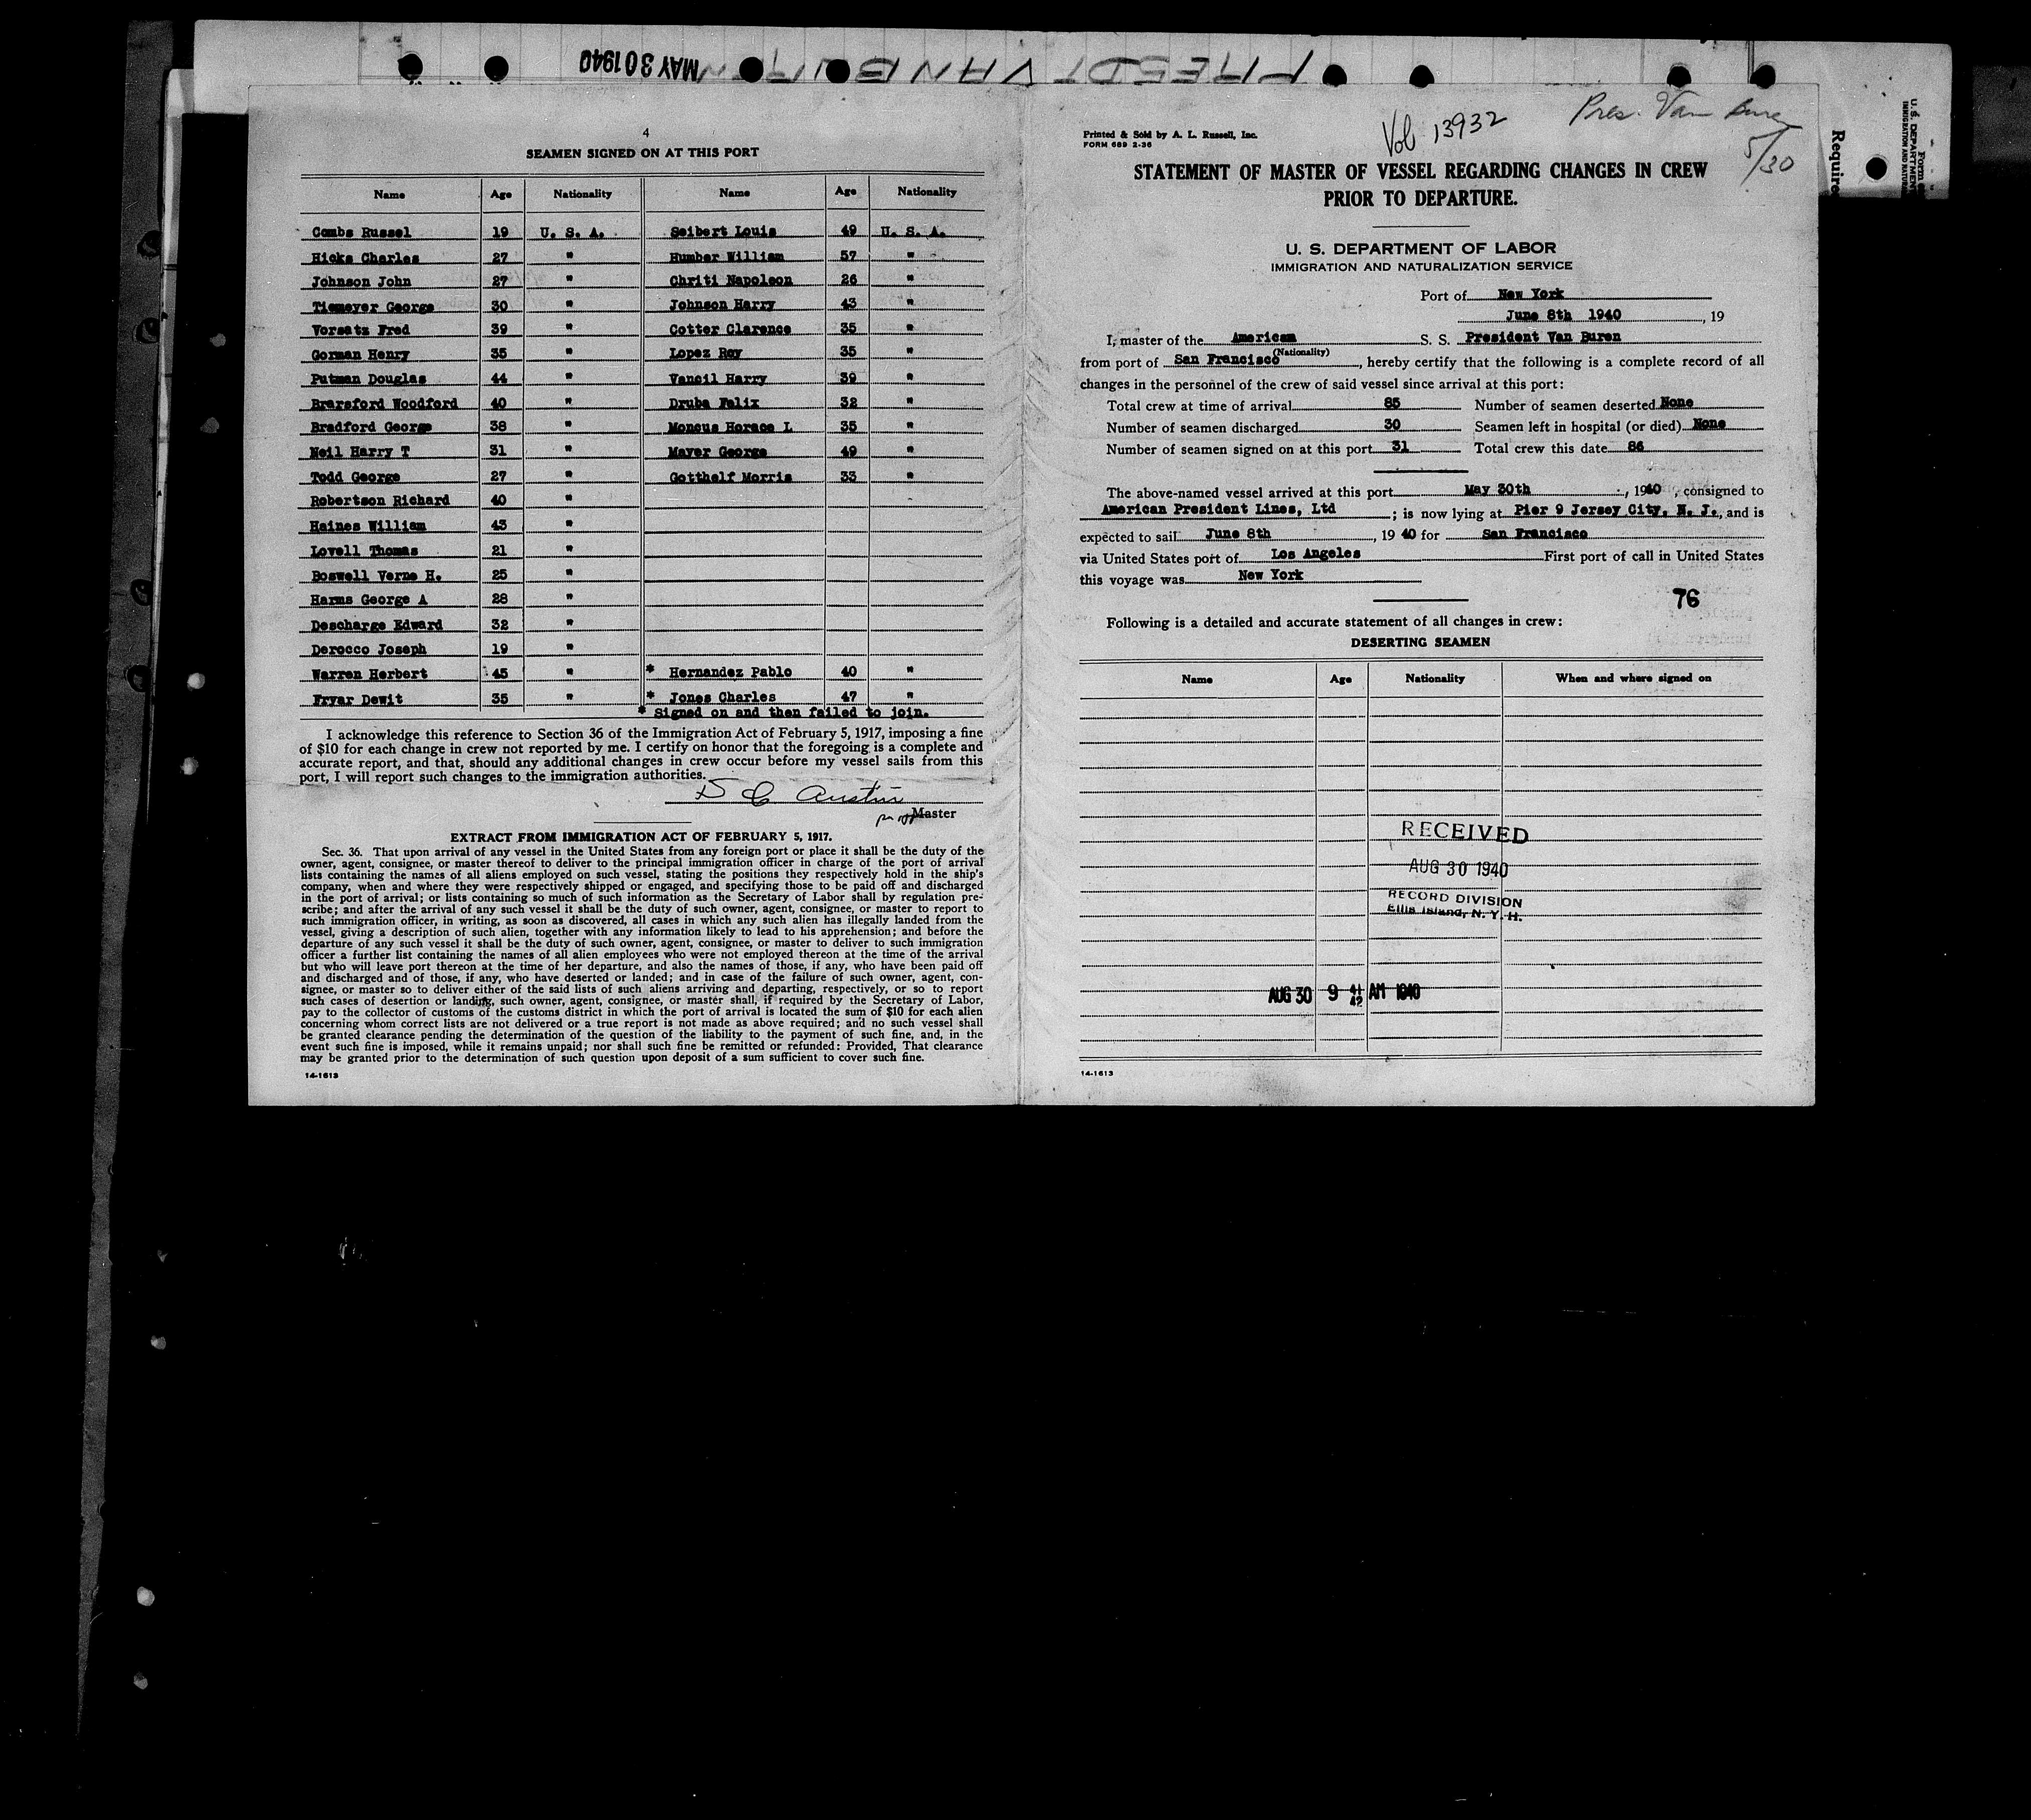 MAY 30 1940
PRESDT VAN BUREN
4
SEAMEN SIGNED ON AT THIS PORT
Name Age Nationality Name Age Nationality
Combs Russel 19 U. S. A. Seibert Louis 49 U. S. A.
Hicks Charles 27 " Humber William 57 "
Johnson John 27 " Chriti Napoleon 26 "
Tiemeyer George 30 " Johnson Harry 43 "
Vorsatz Fred 39 " Cotter Clarence 35 "
Gorman Henry 35 " Lopez Roy 35 "
Putman Douglas 44 " Vancil Harry 39 "
Brarsford Woodford 40 " Druba Felix 32 "
Bradford George 38 " Moncus Horace L 35 "
Neil Harry T 31 " Mayer George 49 "
Todd George 27 " Gotthelf Morris 33 "
Robertson Richard 40 "
Haines William 43 "
Lovell Thomas 21 "
Boswell Verne H. 25 "
Harms George A 28 "
Descharge Edward 32 "
Derocco Joseph 19 "
Warren Herbert 45 " * Hernandez Pablo 40 "
Fryar Dewit 35 " * Jones Charles 47 "
* Signed on and then failed to join.
I acknowledge this reference to Section 36 of the Immigration Act of February 5, 1917, imposing a fine
of $10 for each change in crew not reported by me. I certify on honor that the foregoing is a complete and
accurate report, and that, should any additional changes in crew occur before my vessel sails from this
port, I will report such changes to the immigration authorities.
D C Austin
Master
EXTRACT FROM IMMIGRATION ACT OF FEBRUARY 5, 1917.
Sec. 36. That upon arrival of any vessel in the United States from any foreign port or place it shall be the duty of the
owner, agent, consignee, or master thereof to deliver to the principal immigration officer in charge of the port of arrival
lists containing the names of all aliens employed on such vessel, stating the positions they respectively hold in the ship's
company, when and where they were respectively shipped or engaged, and specifying those to be paid off and discharged
in the port of arrival; or lists containing so much of such information as the Secretary of Labor shall by regulation pre-
scribe; and after the arrival of any such vessel it shall be the duty of such owner, agent, consignee, or master to report to
such immigration officer, in writing, as soon as discovered, all cases in which any such alien has illegally landed from the
vessel, giving a description of such alien, together with any information likely to lead to his apprehension; and before the
departure of any such vessel it shall be the duty of such owner, agent, consignee, or master to deliver to such immigration
officer a further list containing the names of all alien employees who were not employed thereon at the time of the arrival
but who will leave port thereon at the time of her departure, and also the names of those, if any, who have been paid off
and discharged and of those, if any, who have deserted or landed; and in case of the failure of such owner, agent, con-
signee, or master so to deliver either of the said lists of such aliens arriving and departing, respectively, or so to report
such cases of desertion or landing, such owner, agent, consignee, or master shall, if required by the Secretary of Labor,
pay to the collector of customs of the customs district in which the port of arrival is located the sum of $10 for each alien
concerning whom correct lists are not delivered or a true report is not made as above required; and no such vessel shall
be granted clearance pending the determination of the question of the liability to the payment of such fine, and, in the
event such fine is imposed, while it remains unpaid; nor shall such fine be remitted or refunded: Provided, That clearance
may be granted prior to the determination of such question upon deposit of a sum sufficient to cover such fine.
14-1613
Pres. Van Buren
5/30
Vol 13932
Printed & Sold by A. L. Russell, Inc.
FORM 689 2-36
STATEMENT OF MASTER OF VESSEL REGARDING CHANGES IN CREW
PRIOR TO DEPARTURE.
U. S. DEPARTMENT OF LABOR
IMMIGRATION AND NATURALIZATION SERVICE
Port of New York
June 8th 1940, 19
I, master of the American S. S. President Van Buren
(Nationality)
from port of San Francisco, hereby certify that the following is a complete record of all
changes in the personnel of the crew of said vessel since arrival at this port:
Total crew at time of arrival 85 Number of seamen deserted None
Number of seamen discharged 30 Seamen left in hospital (or died) None
Number of seamen signed on at this port 31 Total crew this date 86
The above-named vessel arrived at this port May 30th, 1940, consigned to
American President Lines, Ltd; is now lying at Pier 9 Jersey City, N. J., and is
expected to sail June 8th, 19 40 for San Francisco
via United States port of Los Angeles First port of call in United States
this voyage was New York
76
Following is a detailed and accurate statement of all changes in crew:
DESERTING SEAMEN
Name Age Nationality When and where signed on
RECEIVED
AUG 30 1940
RECORD DIVISION
Ellis Island, N. Y. H.
AUG 30 9 41 42 AM 1940
14-1613
Require
Form
U. S. DEPARTMENT
IMMIGRATION AND NATURA